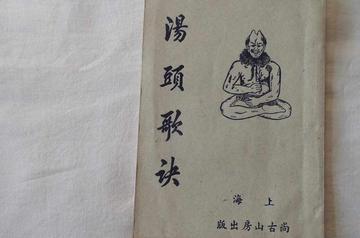 湯頭歌訣
上海
尚古山房出版